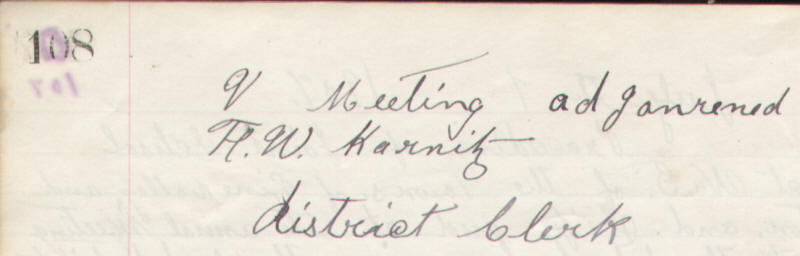 108
107
V Meeting adjonrened
H.W. Karnitz
district Clerk